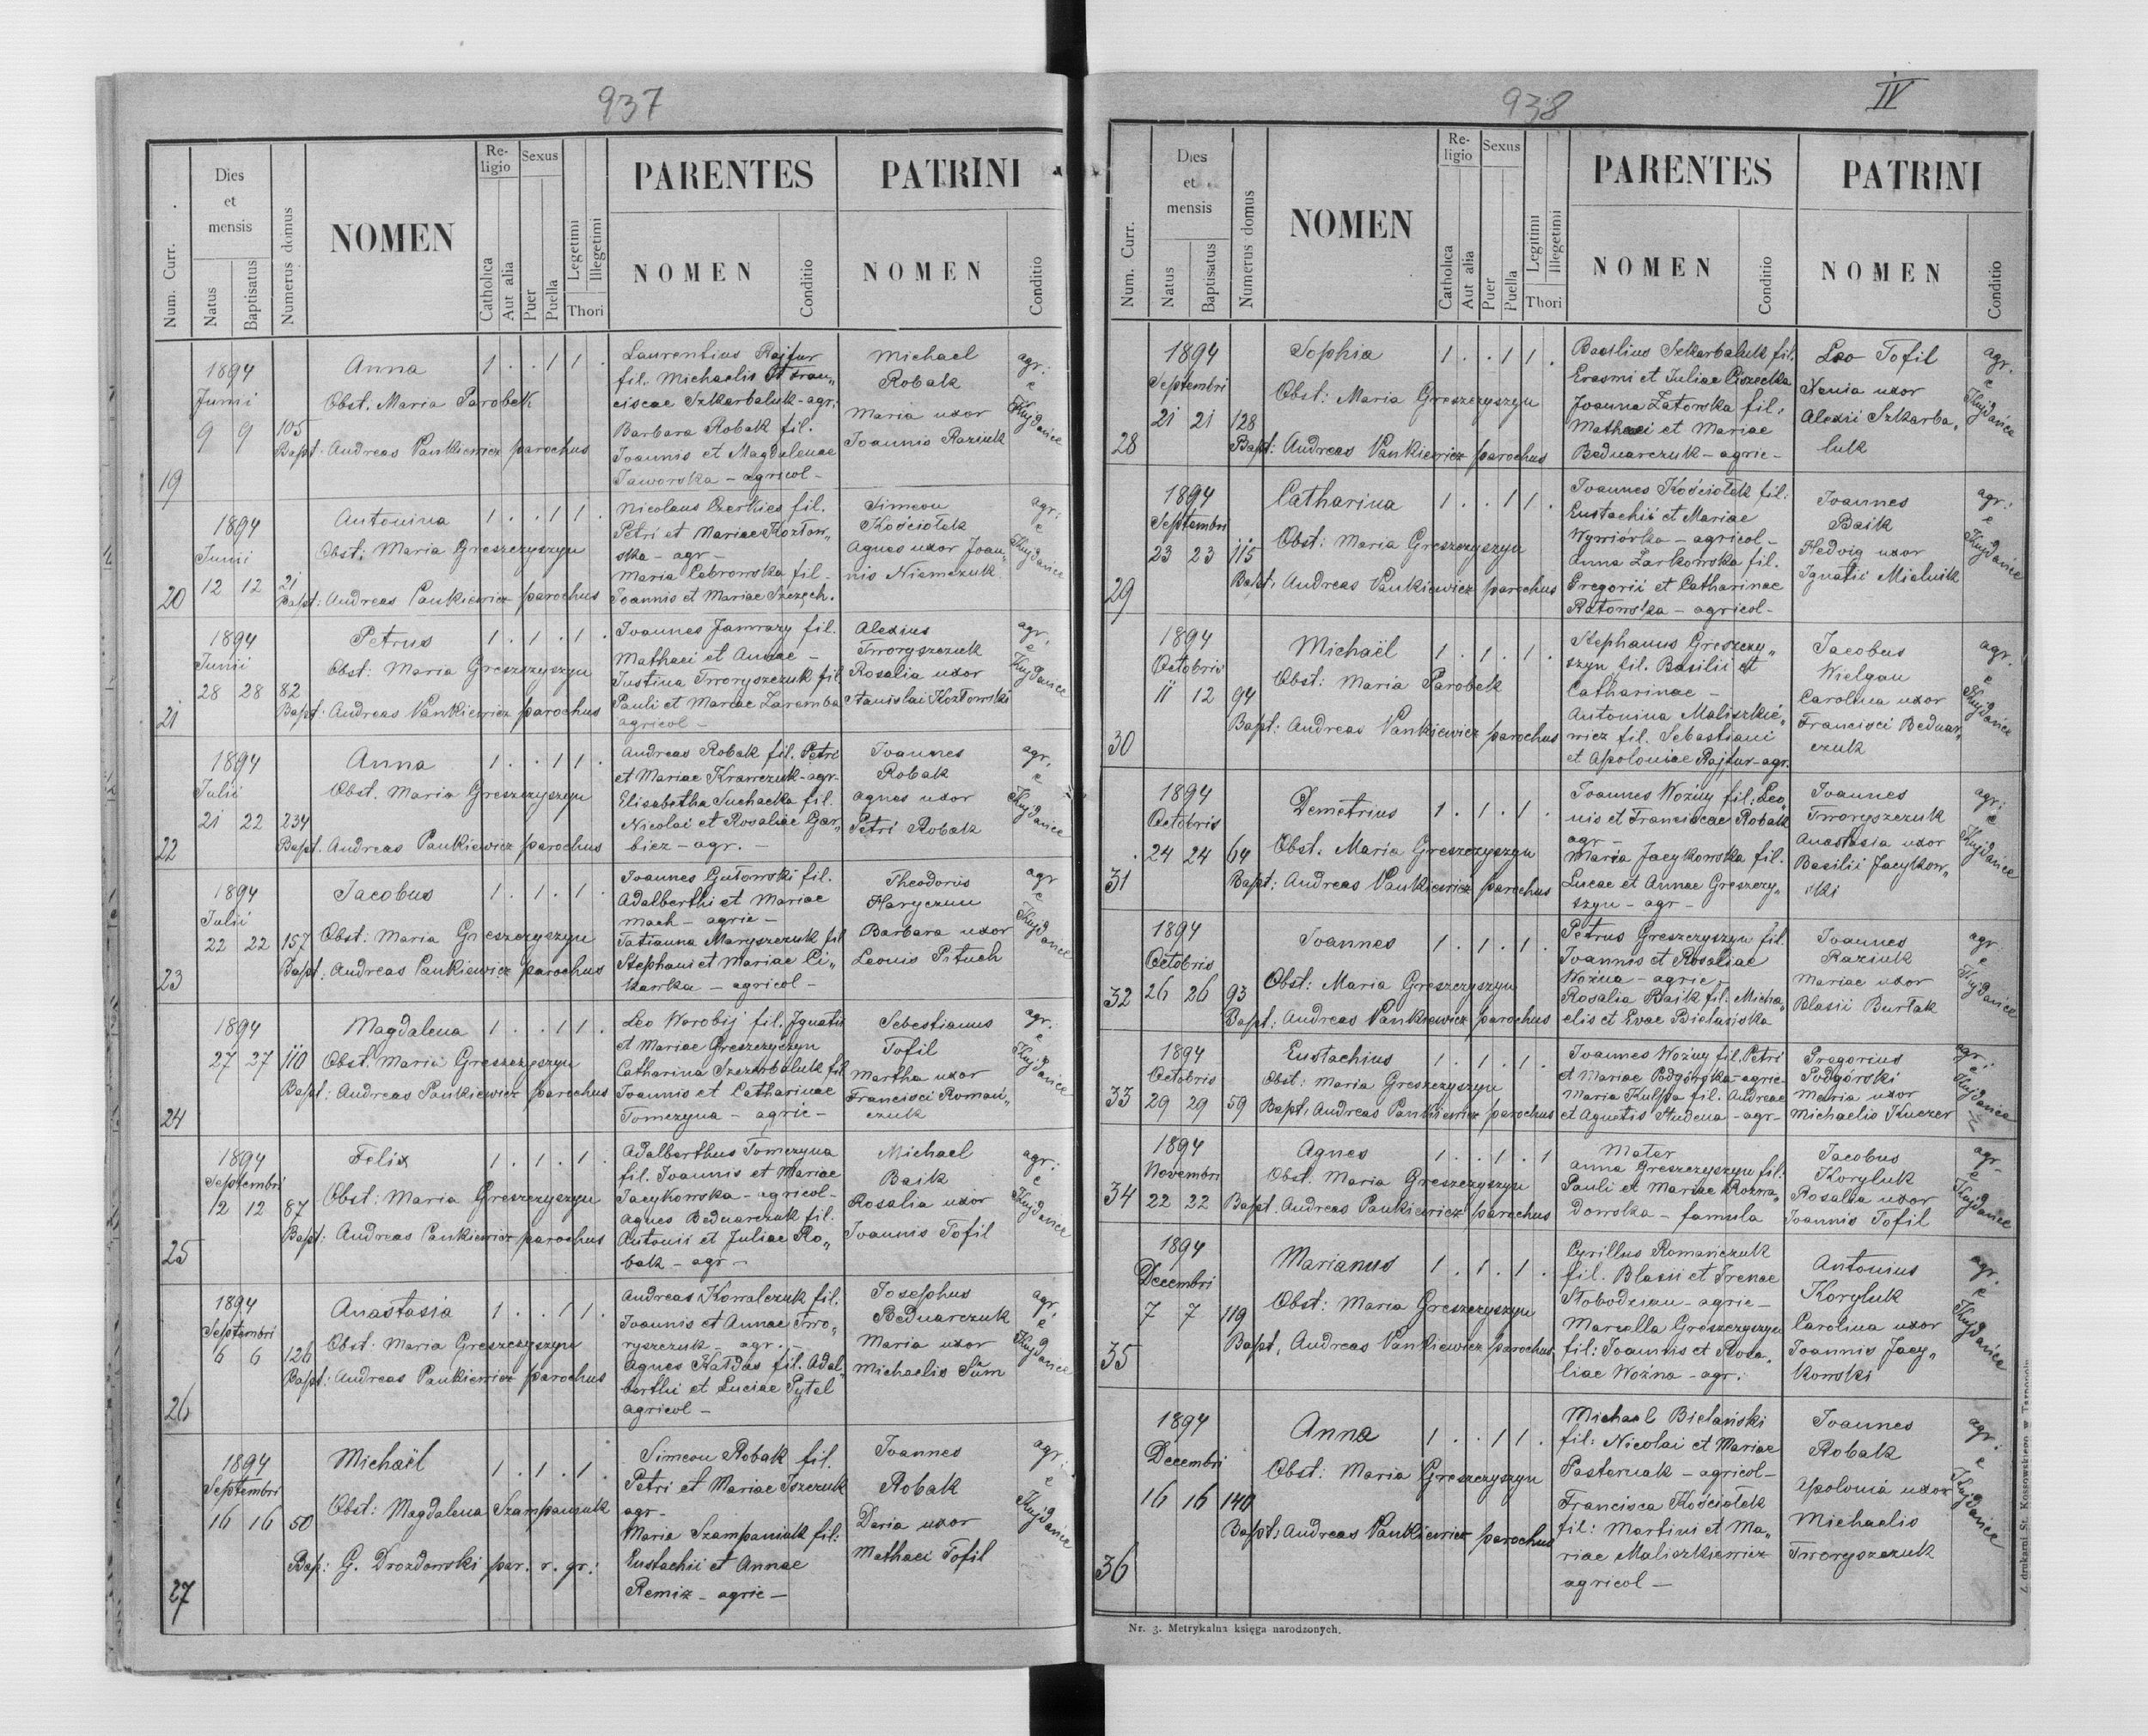 937
Num. Curr.
Dies et mensis
Natus
Baptisatus
Numerus domus
NOMEN
Religio
Catholica
Aut alia
Sexus
Puer
Puella
Legetimi
Illegetimi
Thori
PARENTES
NOMEN
Conditio
PATRINI
NOMEN
Conditio
19
1894
Junii
9 9 105
Anna
1 . . 1 1 .
Obst. Maria Parobek
Bapt. Andreas Pankiewicz parochus
Laurentius Rajfur
fil. Michaelis et Fran„
ciscae Szkarbaluk - agr:
Barbara Robak fil.
Joannis et Magdalenae
Jaworska - agricol -
Michael
Robak
Maria uxor
Joannis Raziuk
agr: e Kujdańce
20
1894
Junii
12 12 21
Antonina
1 . . 1 1 .
Obst: Maria Greszczyszyn
Bapt: Andreas Pankiewicz parochus
Nicolaus Czerkies fil.
Petri et Mariae Kozłow„
ska - agr -
Maria Cebrowska fil -
Joannis et Mariae Szczęch.
Simeon
Kościołek
Agnes uxor Joan„
nis Niemczuk
agr: e Kujdańce
21
1894
Junii
28 28 82
Petrus
1 . 1 . 1 .
Obst: Maria Greszczyszyn
Bapt: Andreas Pankiewicz parochus
Joannes Jawrazy fil.
Mathaei et Annae -
Justina Tworyszczuk fil
Pauli et Mariae Zaremba
agricol -
Alexius
Tworyszczuk
Rosalia uxor
Stanislai Kozłowski
agr. e Kujdańce
22
1894
Julii
21 22 234
Anna
1 . . 1 1 .
Obst. Maria Greszczyszyn
Bapt. Andreas Pankiewicz parochus
Andreas Robak fil. Petri
et Mariae Krawczuk - agr -
Elisabetha Suchacka fil.
Nicolai et Rosaliae Gar„
biez - agr. -
Joannes
Robak
Agnes uxor
Petri Robak
agr. e Kujdańce
23
1894
Julii
22 22 157
Jacobus
1 . 1 . 1 .
Obst: Maria Greszczyszyn
Bapt: Andreas Pankiewicz parochus
Joannes Gutowski fil.
Adalberthi et Mariae
Mach - agric -
Tatianna Maryszczuk fil
Stephani et Mariae Ci„
kawka - agricol -
Theodoris
Haryczun
Barbara uxor
Leonis Pituch
agr e Kujdańce
24
1894
27 27 110
Magdalena
1 . . 1 1 .
Obst. Maria Greszczyszyn
Bapt: Andreas Pankiewicz parochus
Leo Worobij fil. Ignatii
et Mariae Greszczyszyn
Catharina Szczarbaluk fil
Joannis et Catharinae
Tomczyna - agric -
Sebestianus
Tofil
Martha uxor
Francisci Romań„
czuk
agr. e Kujdańce
25
1894
Septembri
12 12 87
Felix
1 . 1 . 1 .
Obst: Maria Greszczyszyn
Bapt: Andreas Pankiewicz parochus
Adalberthus Tomczyna
fil. Joannis et Mariae
Jacykowska - agricol -
Agnes Bednarczuk fil.
Antonii et Juliae Ro„
bak - agr -
Michael
Baik
Rosalia uxor
Joannis Tofil
agr: e Kujdańce
26
1894
Septembri
6 6 126
Anastasia
1 . . 1 1 .
Obst: Maria Greszczyszyn
Bapt: Andreas Pankiewicz parochus
Andreas Kowalczuk fil.
Joannis et Annae Two„
ryszczuk - agr. -
Agnes Hałdas fil. Adal„
berthi et Luciae Pytel
agricol -
Josephus
Bednarczuk
Maria uxor
Michaelis Sum
agr. e Kujdańce
27
1894
Septembri
16 16 50
Michaël
1 . 1 . 1 .
Obst: Magdalena Szampaniuk
Bap: G. Drozdowski par. r. gr:
Simeon Robak fil.
Petri et Mariae Iszczuk
agr -
Maria Szampaniuk fil:
Eustachii et Annae
Remiz - agric -
Joannes
Robak
Daria uxor
Mathaei Tofil
agr: e Kujdańce
938
IV
Num. Curr.
Dies et mensis
Natus
Baptisatus
Numerus domus
NOMEN
Religio
Catholica
Aut alia
Sexus
Puer
Puella
Legitimi
Illegetimi
Thori
PARENTES
NOMEN
Conditio
PATRINI
NOMEN
Conditio
28
1894
Septembri
21 21 128
Sophia
1 . . 1 1 .
Obst: Maria Greszczyszyn
Bapt: Andreas Pankiewicz parochus
Basilius Szkarbaluk fil.
Erasmi et Juliae Ciszecka
Joanna Zatowska fil:
Mathaei et Mariae
Bednarczuk - agric -
Leo Tofil
Xenia uxor
Alexii Szkarba„
luk
agr. e Kujdańce
29
1894
Septembri
23 23 115
Catharina
1 . . 1 1 .
Obst: Maria Greszczyszyn
Bapt: Andreas Pankiewicz parochus
Joannes Kościołek fil:
Eustachii et Mariae
Wywiórka - agricol -
Anna Zarkowska fil.
Gregorii et Catharinae
Ratowska - agricol -
Joannes
Baik
Hedvig uxor
Ignatii Mielnik
agr: e Kujdańce
30
1894
Octobris
11 12 94
Michaël
1 . 1 . 1 .
Obst: Maria Parobek
Bapt: Andreas Pankiewicz parochus
Stephanus Greszczy„
szyn fil. Basilii et
Catharinae -
Antonina Maliszkie„
wicz fil. Sebastiani
et Apoloniae Rajfur - agr.
Jacobus
Wielgan
Carolina uxor
Francisci Bednar„
czuk
agr. e Kujdańce
31
1894
Octobris
24 24 64
Demetrius
1 . 1 . 1 .
Obst. Maria Greszczyszyn
Bapt: Andreas Pankiewicz parochus
Joannes Woźny fil: Leo„
nis et Franciscae Robak
agr -
Maria Jacykowska fil.
Lucae et Annae Greszczy„
szyn - agr -
Joannes
Tworyszczuk
Anastasia uxor
Basilii Jacykow„
ski
agr: e Kujdańce
32
1894
Octobris
26 26 93
Joannes
1 . 1 . 1 .
Obst: Maria Greszczyszyn
Bapt: Andreas Pankiewicz parochus
Petrus Greszczyszyn fil.
Joannis et Rosaliae
Woźna - agric -
Rosalia Baik fil: Micha„
elis et Evae Bielasiska
Joannes
Raziuk
Mariae uxor
Blasii Burłak
agr. e Kujdańce
33
1894
Octobris
29 29 59
Eustachius
1 . 1 . 1 .
Obst: Maria Greszczyszyn
Bapt: Andreas Pankiewicz parochus
Joannes Woźny fil. Petri
et Mariae Podgórska - agric -
Maria Kulpa fil. Andreae
et Agnetis Studena - agr -
Gregorius
Podgórski
Maria uxor
Michaelis Kuczer
agr: e Kujdańce
34
1894
Novembri
22 22
Agnes
1 . . 1 . 1
Obst. Maria Greszczyszyn
Bapt. Andreas Pankiewicz parochus
Mater
Anna Greszczyszyn fil:
Pauli et Mariae Rozwa„
dowska - famula
Jacobus
Koryluk
Rosalia uxor
Joannis Tofil
agr - e Kujdańce
35
1894
Decembri
7 7 119
Marianus
1 . 1 . 1 .
Obst: Maria Greszczyszyn
Bapt. Andreas Pankiewicz parochus
Cyrillus Romańczuk
fil. Blasii et Irenae
Słobodzian - agric -
Marcella Greszczyszyn
fil: Joannis et Rosa„
liae Woźna - agr:
Antonius
Koryluk
Carolina uxor
Joannis Jacy„
kowski
agr. e Kujdańce
36
1894
Decembri
16 16 140
Anna
1 . . 1 1 .
Obst: Maria Greszczyszyn
Bapt: Andreas Pankiewicz parochus
Michael Bielański
fil: Nicolai et Mariae
Pasternak - agricol -
Francisca Kościołek
fil: Martini et Ma„
riae Maliszkiewicz
agricol -
Joannes
Robak
Apolonia uxor
Michaelis
Tworyszczuk
agr: e Kujdańce
Nr. 3. Metrykalna księga narodzonych.
Z drukarni St. Kossowskiego w Tarnopolu